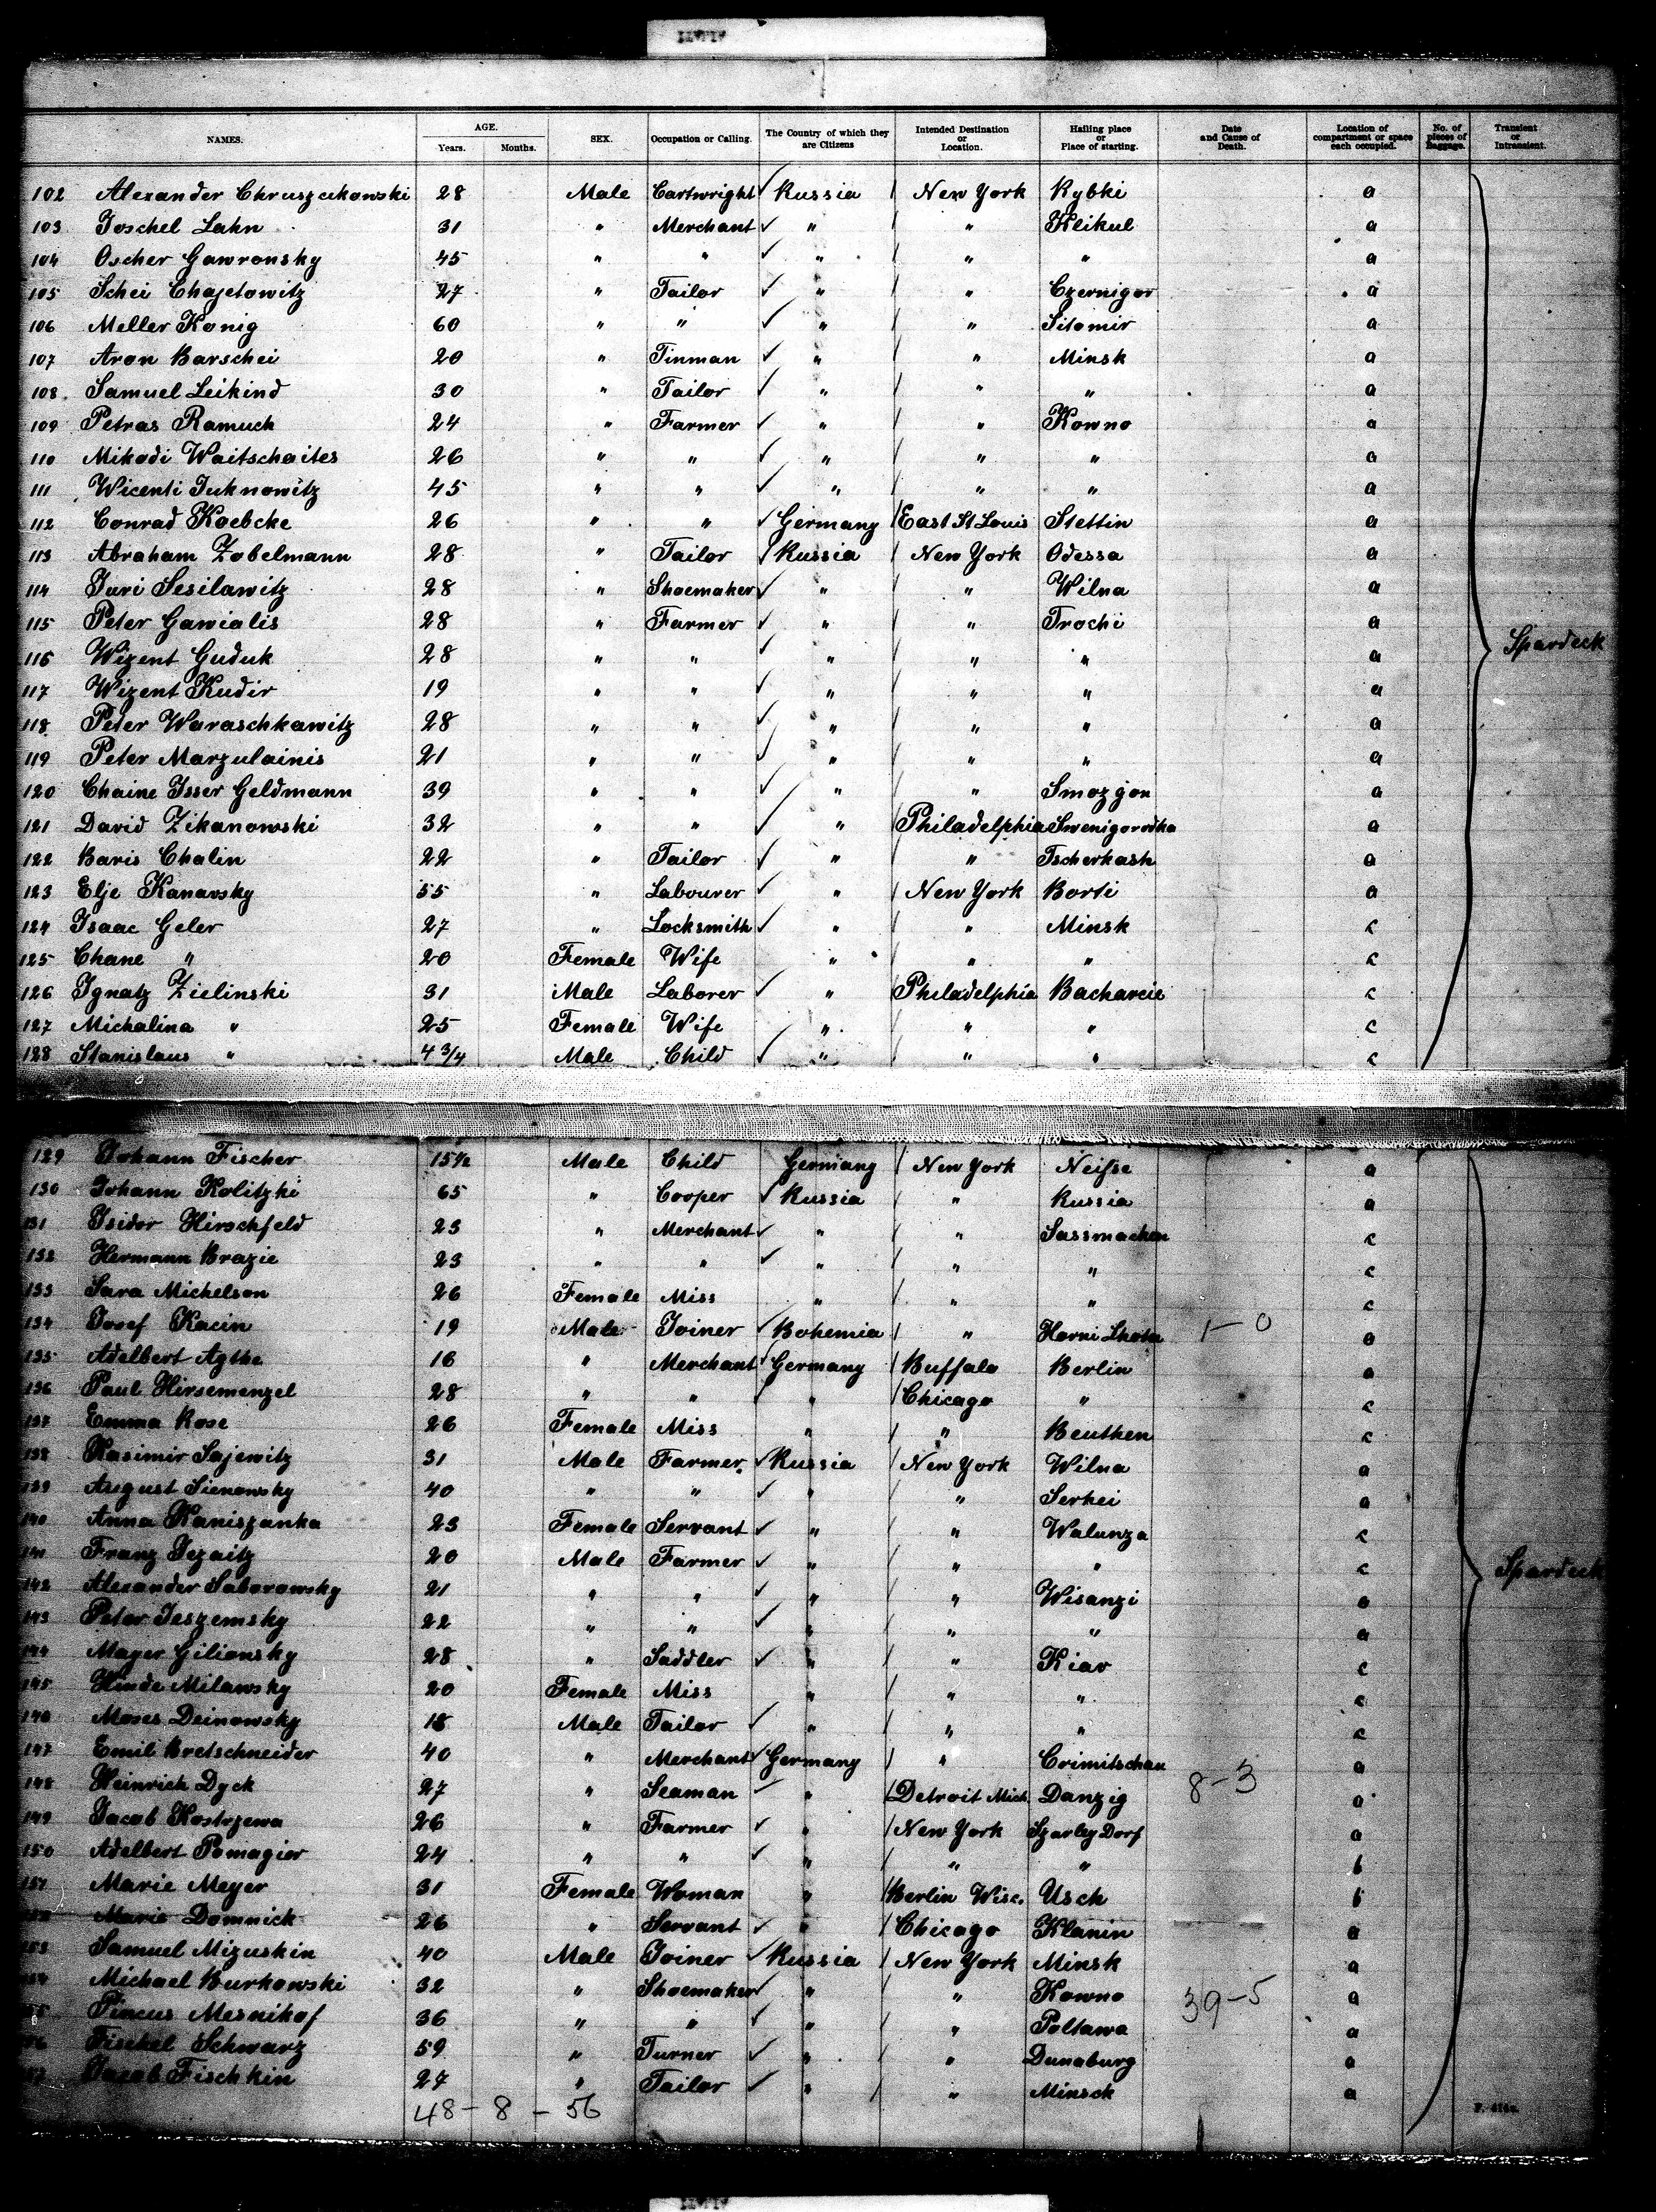 NAMES. AGE. Years. Months. SEX. Occupation or Calling. The Country of which they are Citizens Intended Destination or Location. Hailing place or Place of starting. Date and Cause of Death. Location of compartment or space each occupied. No. of pieces of Baggage. Transient or Intransient.
102 Alexander Chruszcikowski 28 Male Cartwright ✓ Russia / New York Rybki a
103 Joschel Lahn 31 " Merchant ✓ " / " Klikul a
104 Oscher Gawronsky 45 " " ✓ " / " " a
105 Schei Chajetowitz 27 " Tailor ✓ " / " Czernigor a
106 Meller Konig 60 " " ✓ " / " Sitomir a
107 Aron Barschei 20 " Tinman ✓ " / " Minsk a
108 Samuel Leikind 30 " Tailor ✓ " / " " a
109 Petras Ramuch 24 " Farmer ✓ " / " Kowno a
110 Mikodi Waitschaites 26 " " ✓ " / " " a
111 Wicenti Juknowitz 45 " " ✓ " / " " a
112 Conrad Koebcke 26 " " ✓ Germany / East St Louis Stettin a
113 Abraham Zobelmann 28 " Tailor ✓ Russia / New York Odessa a
114 Juri Sesilawitz 28 " Shoemaker ✓ " / " Wilna a
115 Peter Gawialis 28 " Farmer ✓ " / " Trochi a
Spardeck
116 Wizent Guduk 28 " " ✓ " / " " a
117 Wizent Kudir 19 " " ✓ " / " " a
118 Peter Waraschkawitz 28 " " ✓ " / " " a
119 Peter Marzulainis 21 " " ✓ " / " " a
120 Chaine Isser Geldmann 39 " " ✓ " / " Smozgon a
121 David Zikanowski 32 " " ✓ " / Philadelphia Swenigorodka a
122 Baris Chalin 22 " Tailor ✓ " / " Tscherkask a
123 Elje Kanavsky 55 " Labourer ✓ " / New York Borti a
124 Isaac Geler 27 " Locksmith ✓ " / " Minsk c
125 Chane " 20 Female Wife " / " " c
126 Ignatz Zielinski 31 Male Laborer ✓ " / Philadelphia Bacharcie c
127 Michalina " 25 Female Wife " / " " c
128 Stanislaus " 4 3/4 Male Child ✓ " / " " c
129 Johann Fischer 15 1/2 Male Child Germany / New York Neisse a
130 Johann Kolitzki 65 " Cooper ✓ Russia / " Russia a
131 Isidor Hirschfeld 23 " Merchant ✓ " / " Sassmacken c
132 Hermann Brazie 23 " " ✓ " / " " c
133 Sara Michelson 26 Female Miss " / " " c
134 Josef Kacin 19 Male Joiner ✓ Bohemia / " Horni Lhota 1-0 a
135 Adelbert Agthe 16 " Merchant ✓ Germany / Buffalo Berlin a
136 Paul Hirsemenzel 28 " " " / Chicago " c
137 Emma Rose 26 Female Miss " / " Beuthen c
138 Kasimir Sajewitz 31 Male Farmer ✓ Russia / New York Wilna a
139 August Sienowsky 40 " " ✓ " / " Serhei a
140 Anna Kaniszanka 23 Female Servant ✓ " / " Walunza c
141 Franz Jezaitz 20 Male Farmer ✓ " / " " c
Spardeck
142 Alexander Saborowsky 21 " " ✓ " / " Wisanzi a
143 Peter Jeszemsky 22 " " ✓ " / " " a
144 Mayer Giliansky 28 " Saddler ✓ " / " Kiav c
145 Hinde Milawsky 20 Female Miss " / " " c
146 Moses Deinowsky 18 Male Tailor ✓ " / " " c
147 Emil Bretschneider 40 " Merchant ✓ Germany / " Crimitschau a
148 Heinrich Dyck 27 " Seaman ✓ " / Detroit Mich. Danzig 8-3 a
149 Jacob Kostrzewa 26 " Farmer ✓ " / New York Szarley Dorf a
150 Adelbert Pomagier 24 " " ✓ " / " " b
151 Marie Meyer 31 Female Woman " / Berlin Wisc. Usch b
152 Marie Domnick 26 " Servant ✓ " / Chicago Klanin a
153 Samuel Mizuskin 40 Male Joiner ✓ Russia / New York Minsk a
154 Michael Burkowski 32 " Shoemaker ✓ " / " Kowno 39-5 a
155 Pincus Mesnikof 36 " " ✓ " / " Poltawa a
156 Fischel Schwarz 59 " Turner ✓ " / " Dunaburg a
157 Jacob Fischkin 27 " Tailor ✓ " / " Minsck a
48-8-56